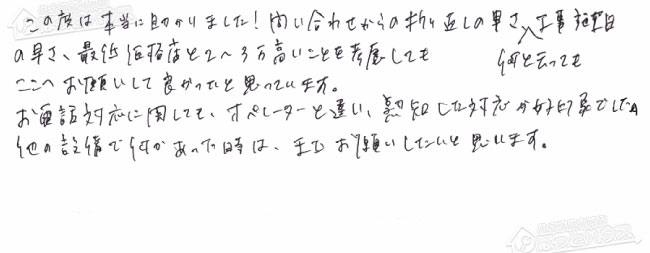 この度は本当に助かりました！問い合わせからの折り返しの早さ、工事施工日
の早さ、最低価格店と2〜3万高いことを考慮しても 何と云っても
ここへお願いして良かったと思っています。
お電話対応に関しても、オペレーターと違い、熟知した対応が好印象でした。
他の設備で何かあった時は、またお願いしたいと思います。